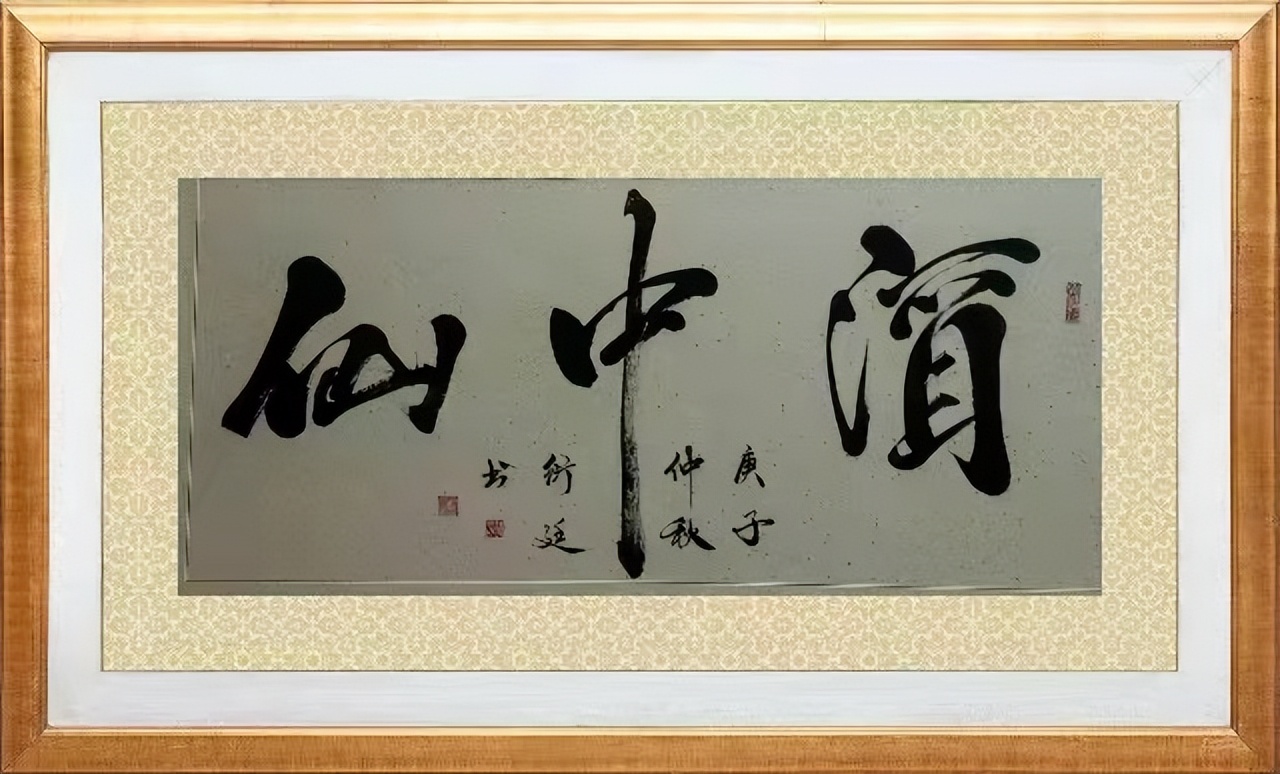 酒中仙
庚子
仲秋
衍廷
书